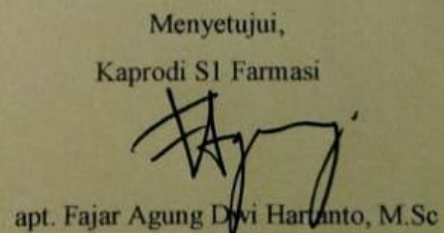 Menyetujui,
Kaprodi S1 Farmasi
apt. Fajar Agung Dwi Hartanto, M.Sc